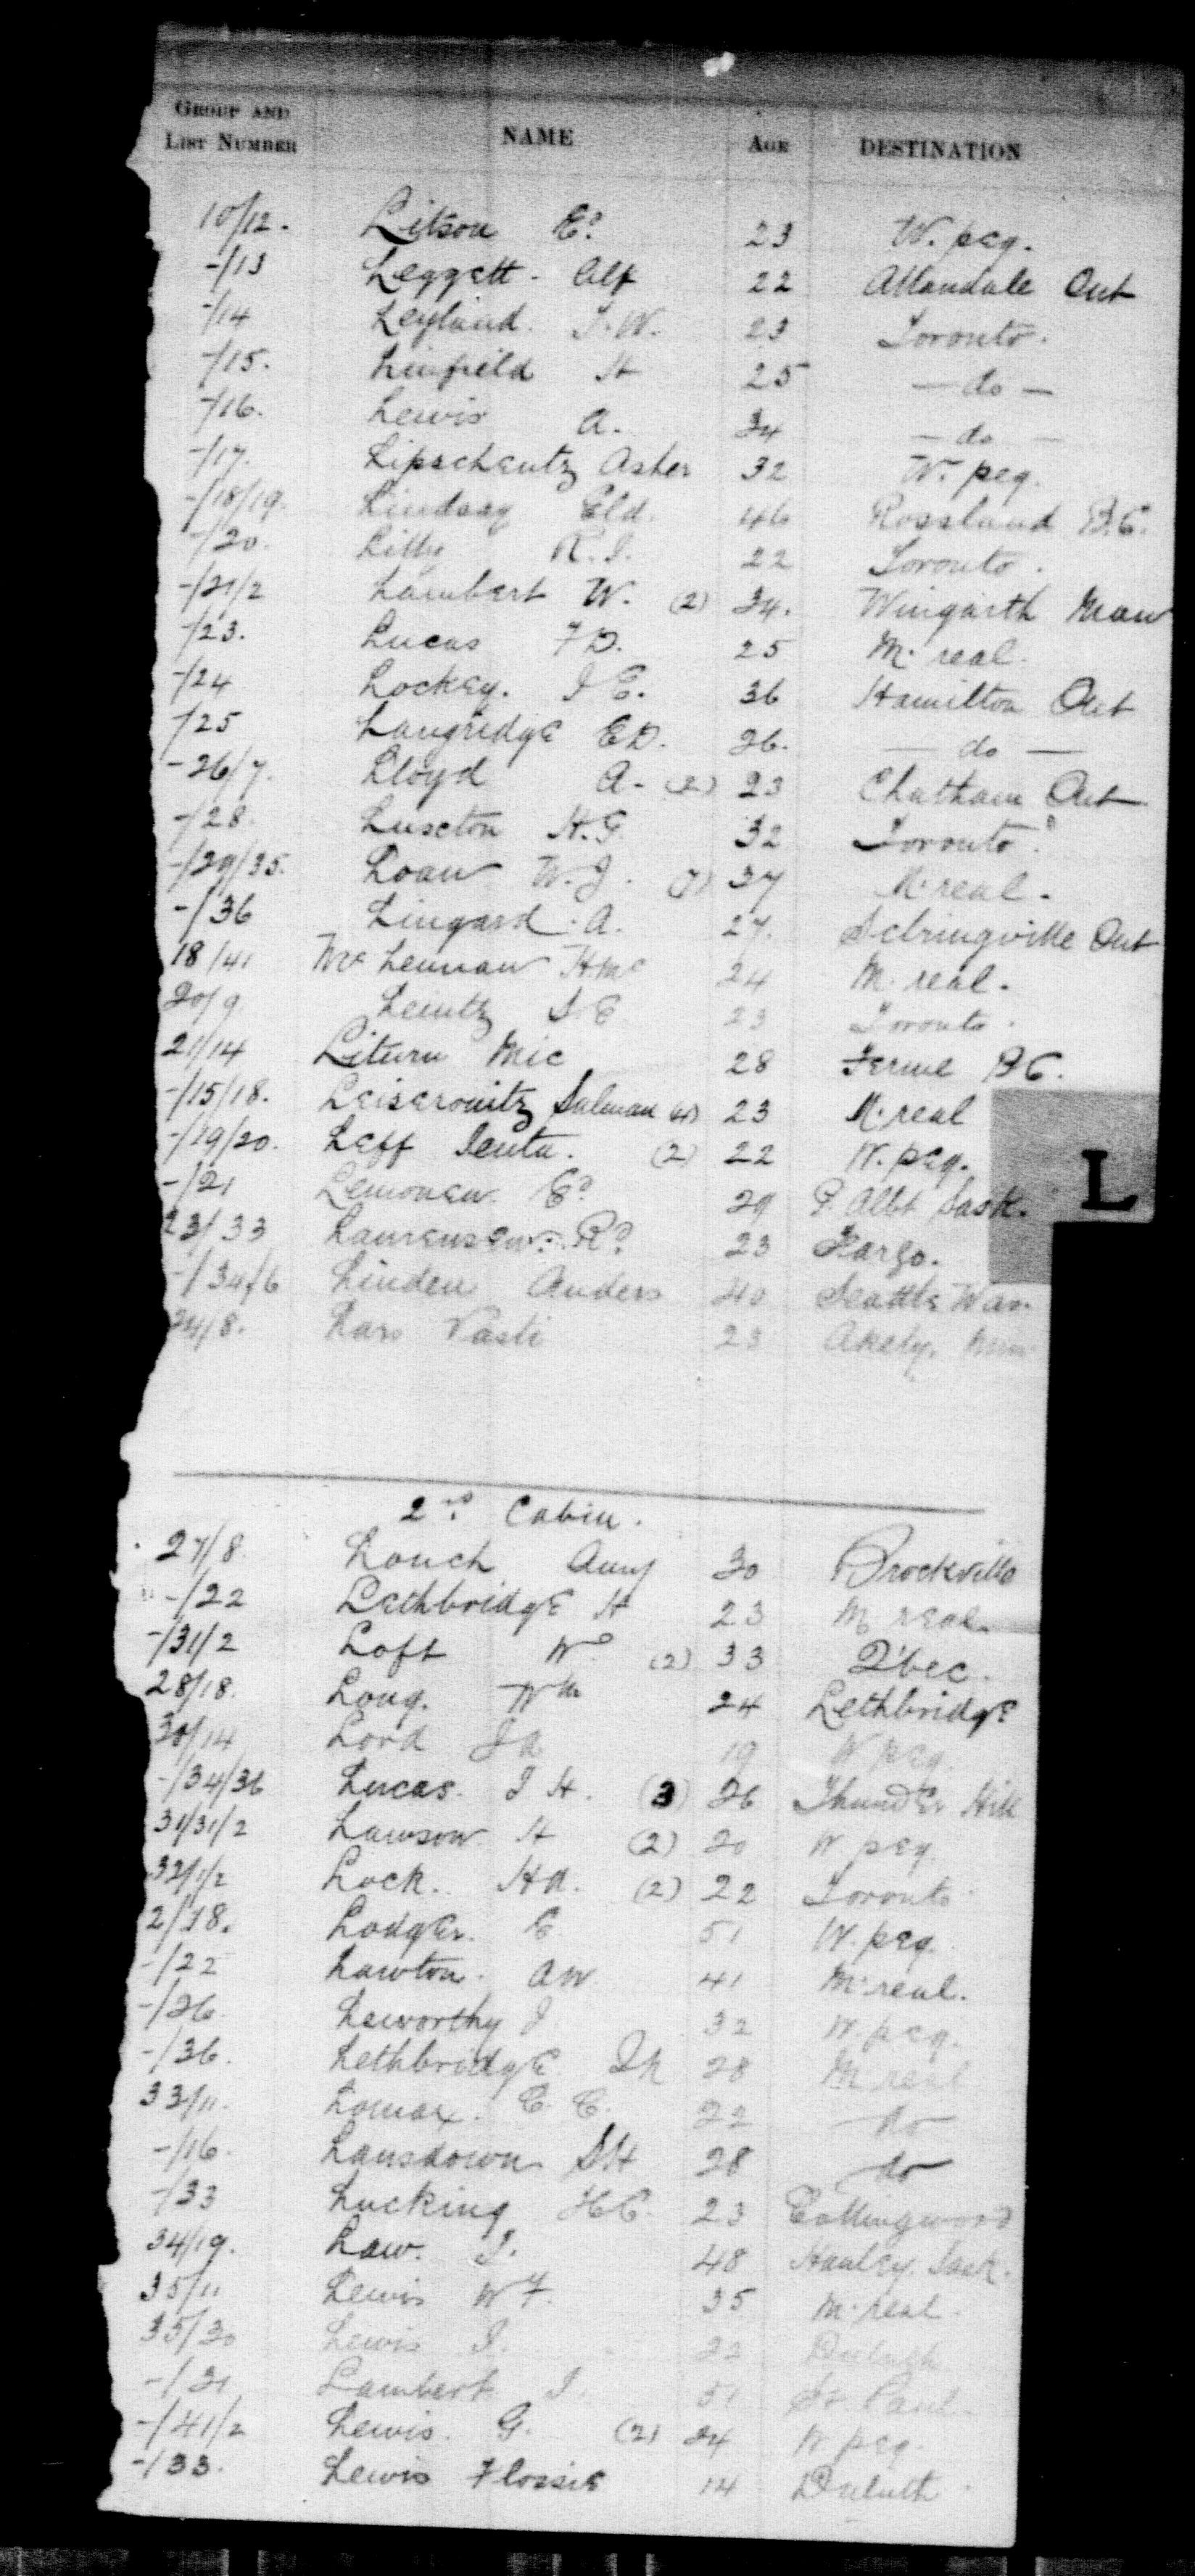 GROUP AND LIST NUMBER NAME AGE DESTINATION
10/12. Litson Ed. 23 W.peg.
-/13 Leggett. Alf 22 Allandale Ont
-/14 Leyland. J.W. 23 Toronto.
-/15. Linfield H 25 — do —
-/16. Lewis A. 34 — do —
-/17. Lipscheutz Asher 32 W.peg.
-/18/19. Lindsay Eld. 46 Rossland B.C.
-/20. Lilly R.J. 22 Toronto.
-/21/2 Lambert W. (2) 34. Wingarth Man
-/23. Lucas F D. 25 M.real.
-/24 Lockey. J E. 36 Hamilton Ont
-/25 Langridge E D. 26. — do —
-26/7. Lloyd A. (2) 23 Chatham Ont
-/28. Luscton H.G. 32 Toronto.
-/29/35. Loan W.J. (7) 37 M.real.
-/36 Lingard. A. 27. Sebringville Ont
18/41 Mc Lennan H Mc 24 M.real.
20/9. Leintz S E 23 Toronto.
21/14 Liturn Mic 28 Fernie B C.
-/15/18. Leiserowitz Salman (4) 23 M.real
-/19/20. Leff Senta. (2) 22 W.peg.
-/21 Lemonen Ed. 29 P. Albt Sask.
23/33 Laurensen. Rd. 23 Fargo.
-/34/6 Linden Anders 40 Seattle Wash.
24/8. Lars Vasti 23 Akely. Minn
L
2nd Cabin.
27/8. Louch Amy 30 Brockville
-/22 Lethbridge H 23 M real.
-/31/2 Loft Wd (2) 33 Q'bec.
28/18. Long. Wm 24 Lethbridge
30/14 Lord Ja 19 W peg.
-/34/36 Lucas. J H. (3) 26 Thunder Hill
31/31/2 Lawson H (2) 20 W peg.
32/1/2 Lock. H A. (2) 22 Toronto
2/18. Lodger. E 51 W.peg.
-/22 Lawton. A W 41 M.real.
-/26. Leworthy J 32 W.peg.
-/36. Lethbridge Jh 28 M real
33/11. Lomax. C. C. 22 do
-/16. Lansdown S H 28 do
-/33 Lucking H C. 23 Collingwood
34/19. Law. J. 48 Hanley. Sask.
35/11 Lewis W F. 35 M.real.
35/30 Lewis J. 22 Duluth
-/31 Lambert J. 51 St Paul.
-/41/2 Lewis. G. (2) 24 W peg.
-/33. Lewis Flossie 14 Duluth